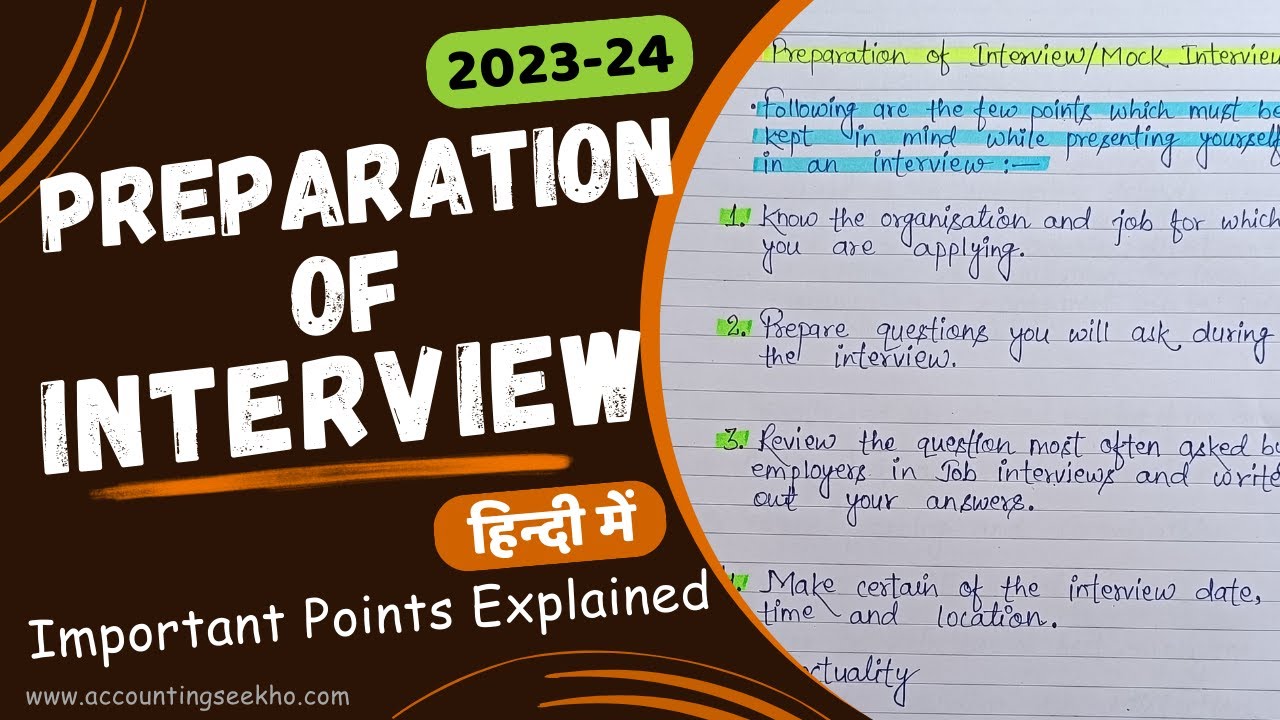 2023-24
PREPARATION
OF
INTERVIEW
हिन्दी में
Important Points Explained
www.accountingseekho.com
Preparation of Interview/Mock Interview
• Following are the few points which must be
kept in mind while presenting yourself
in an interview:—
1. Know the organisation and job for which
you are applying.
2. Prepare questions you will ask during
the interview.
3. Review the question most often asked by
employers in Job interviews and write
out your answers.
Make certain of the interview date,
time and location.
ctuality